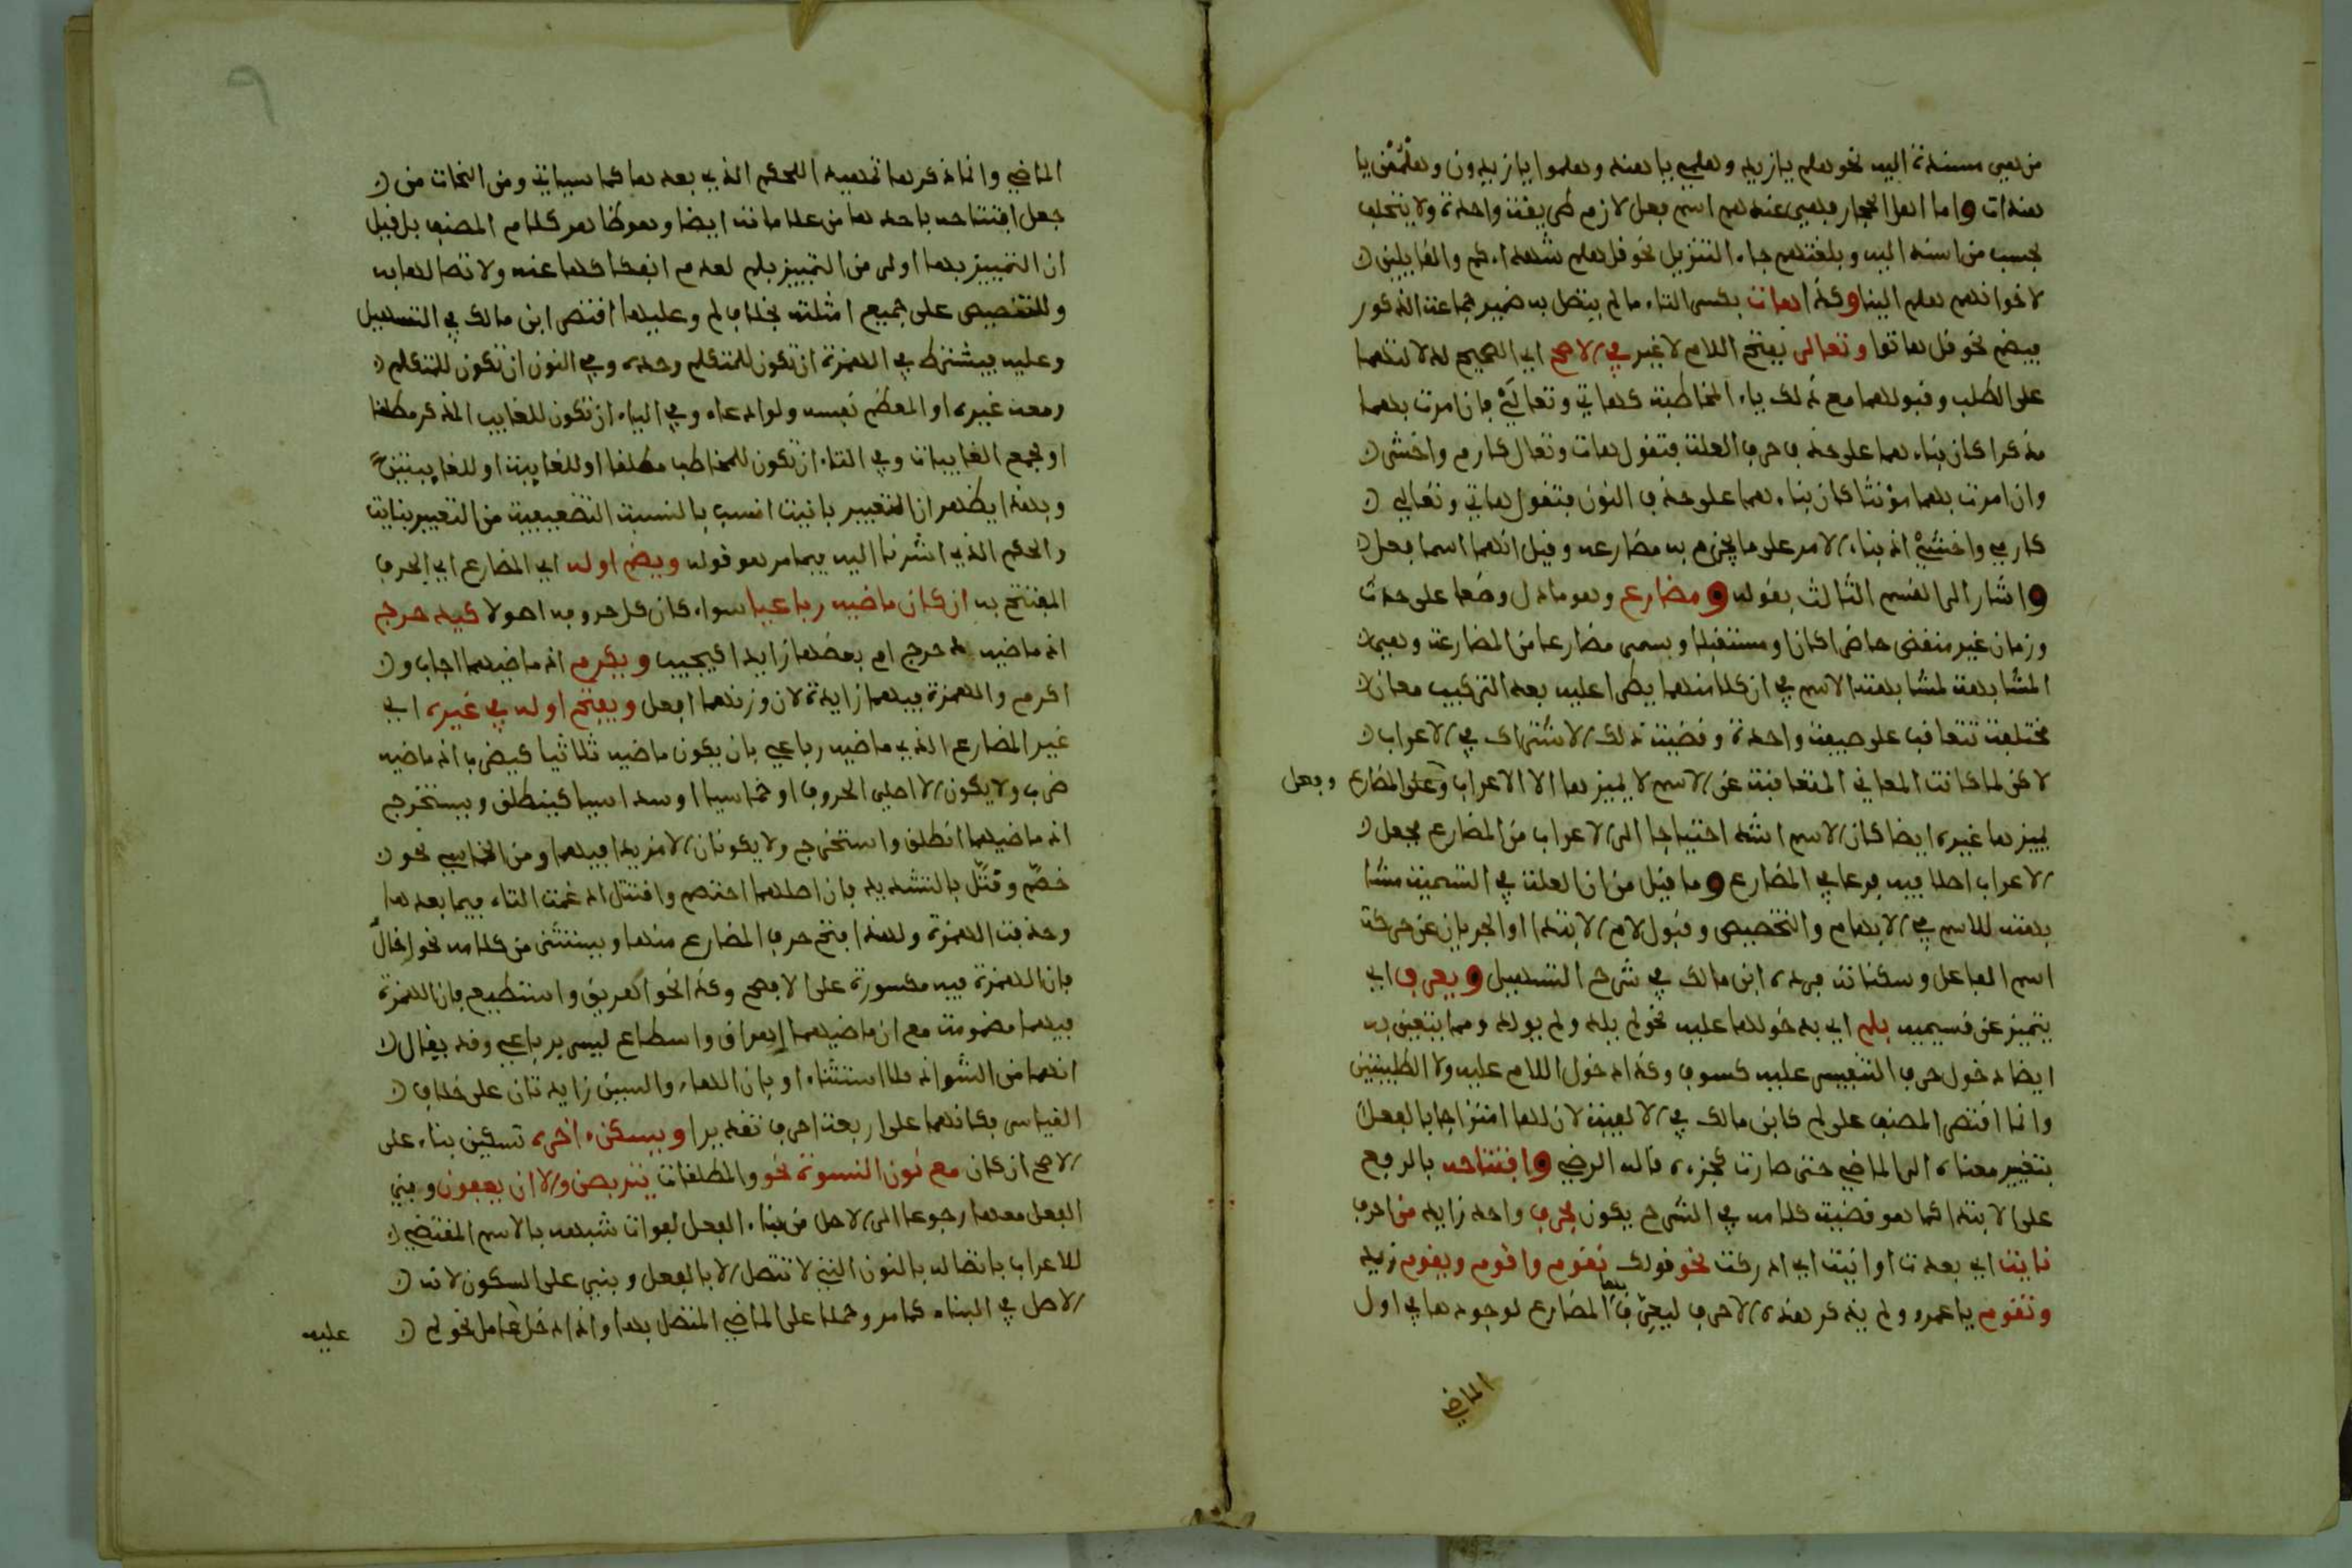 فهي مسندة اليه نحو هلم يازيد وهلمي يا هند وهلموا يا زيدون وهلممن يا
هندات واما اهل الحجاز فهي عندهم اسم فعل لازم طريقة واحدة ولا يختلف
بحسب من اسند اليه وبلغتهم جاء التنزيل نحو قل هلم شهداءكم والقايلين
لاخوانهم هلم الينا وكذا هات بكسر التاء ما لم يتصل به ضمير جماعة الذكور
فيضم نحو قل هاتوا وتعالى بفتح اللام لا غير في الاصح اي الصحيح لدلالتهما
على الطلب وقبولهما مع ذلك ياء المخاطبة كهاتي وتعالي فان امرت بهما
مذكرا كان بناءهما على حذف حرف العلة فتقول هات وتعال كارم واخش
وان امرت بهما مؤنثا كان بناءهما على حذف النون فتقول هاتي وتعالي
كارمي واخشي اذ بناء الامر على ما يجزم به مضارعه وقيل انهما اسما فعل
واشار الى القسم الثالث بقوله ومضارع وهو ما دل وضعا على حدث
وزمان غير منقض حاضرا كان او مستقبلا وسمي مضارعا من المضارعة وهي
المشابهة لمشابهته الاسم في ان كلا منهما يطرا عليه بعد التركيب معان
مختلفة تتعاقب على صيغة واحدة وقضية ذلك الاشتراك في الاعراب
لاكن لما كانت المعاني المتعاقبة عن الاسم لا يميزها الا الاعراب وعلى المضارع
يميزها غيره ايضا كان الاسم اشد احتياجا الى الاعراب من المضارع فجعل
الاعراب اصلا فيه فرعا في المضارع وما قيل من ان العلة في التسمية مشا
بهته للاسم في الابهام والتخصيص وقبول لام الابتداء او الجريان عن حركة
اسم الفاعل وسكناته فرده ابن مالك في شرح التسهيل ويعرف اي
يتميز عن قسيميه بلم اي بدخولها عليه نحو لم يلد ولم يولد ومما يتعين به
ايضا دخول حرف التنفيس عليه كسوف وكذا دخول اللام عليه ولا الطلبيتين
وانما اقتصر المصنف على لم كابن مالك في الالفية لان لها امتزاجا بالفعل
بتغيير معناه الى الماضي حتى صارت كجزءه قاله الرضي وافتتاحه بالرفع
على الابتدا كما هو قضية كلامه في الشرح يكون بحرف واحد زايد من احرف
نايت اي بعدت او انيت اي ادركت نحو قولك نقوم واقوم ويقوم زيد
وتقوم يا عمرو ولم يذكر هذه الاحرف ليعرف بها المضارع لوجودها في اول
وجعل
الماضي
الماضي وانما ذكرها تمهيدا للحكم الذي بعدها كما سياتي ومن النحات من
جعل افتتاحه باحدها من علاماته ايضا وهو ظاهر كلام المصنف بل قيل
ان التمييز بها اولى من التمييز بلم لعدم انفكاكها عنه ولاتصالها به
وللتنصيص على جميع امثلته بخلاف لم وعليها اقتصر ابن مالك في التسهيل
وعليه فيشترط في الهمزة ان تكون للمتكلم وحده وفي النون ان تكون للمتكلم
ومعه غيره او المعظم نفسه ولو ادعاء وفي الياء ان تكون للغايب المذكر مطلقا
او لجمع الغايبات وفي التاء ان تكون للمخاطب مطلقا او للغايبة او للغايبتين
وبهذا يظهر ان التعبير بانيت انسب بالنسبة التضعيفية من التعبير بنايت
والحكم الذي اشرنا اليه فيما مر هو قوله ويضم اوله اي المضارع اي الحرف
المفتتح به ان كان ماضيه رباعيا سواء كان كل حروفه اصولا كيدحرج
اذ ماضيه دحرج ام بعضها زايدا كيجيب ويكرم اذ ماضيهما اجاب و
اكرم والهمزة فيهما زايدة لان وزنهما افعل ويفتح اوله في غيره اي
غير المضارع الذي ماضيه رباعي بان يكون ماضيه ثلاثيا كيضرب اذ ماضيه
ضرب ولا يكون الا اصلي الحروف او خماسيا او سداسيا كينطلق ويستخرج
اذ ماضيهما انطلق واستخرج ولا يكونان الا مزيدا فيهما ومن الخماسي نحو
خصّم وقتّل بالتشديد فان اصلهما اختصم واقتتل ادغمت التاء فيما بعدها
وحذفت الهمزة ولهذا فتح حرف المضارع منها ويستثنى من كلامه نحو اخال
فان الهمزة فيه مكسورة على الافصح وكذا نحو اهريق واسطيع فان الهمزة
فيهما مضمومة مع ان ماضيهما اهراق واسطاع ليس برباعي وقد يقال
انهما من الشواذ فلا استثناء او بان الهاء والسين زايدتان على خلاف
القياس فكانهما على اربعة احرف تقديرا ويسكن اخره تسكين بناء على
الاصح ان كان مع نون النسوة نحو والمطلقات يتربصن والا ان يعفون وبني
الفعل معها رجوعا الى الاصل من بناء الفعل لفوات شبهه بالاسم المقتضي
للاعراب باتصاله بالنون التي لا تتصل الا بالفعل وبني على السكون لانه
الاصل في البناء كما مر وحملا على الماضي المتصل بها واذا دخل عامل نحو لم
عليه
٩